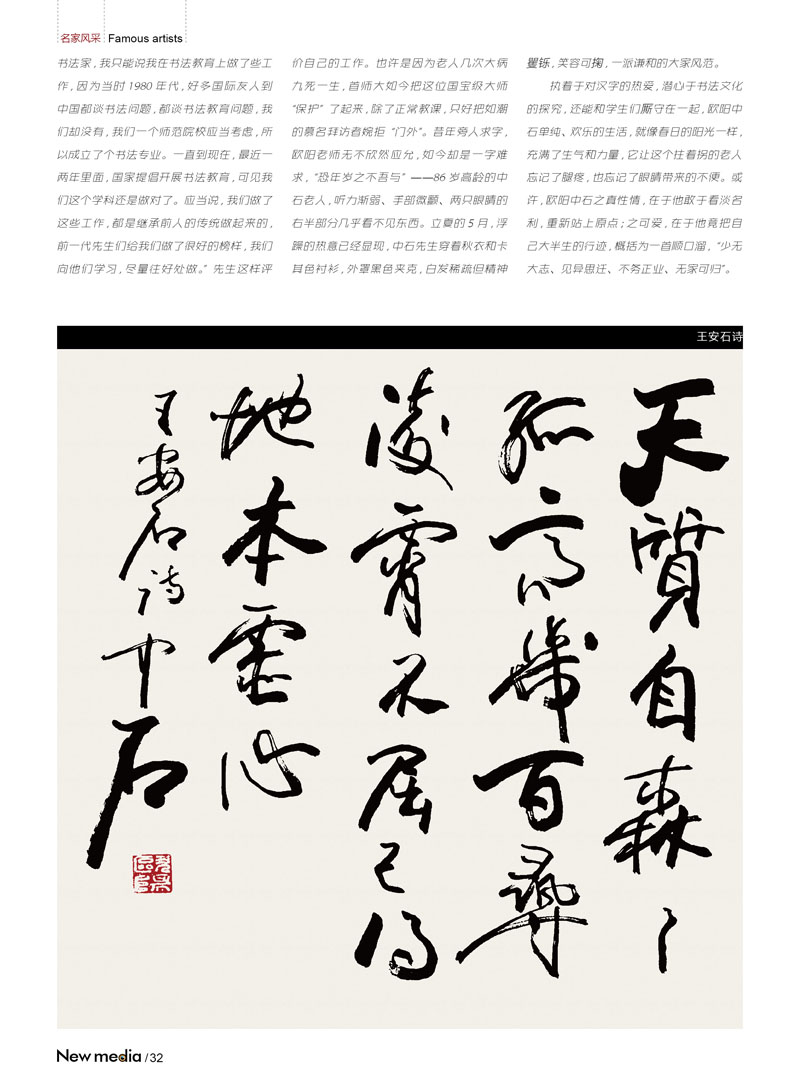 名家风采 Famous artists
书法家，我只能说我在书法教育上做了些工
作，因为当时1980年代，好多国际友人到
中国都谈书法问题，都谈书法教育问题，我
们却没有，我们一个师范院校应当考虑，所
以成立了个书法专业。一直到现在，最近一
两年里面，国家提倡开展书法教育，可见我
们这个学科还是做对了。应当说，我们做了
这些工作，都是继承前人的传统做起来的，
前一代先生们给我们做了很好的榜样，我们
向他们学习，尽量往好处做。”先生这样评
价自己的工作。也许是因为老人几次大病
九死一生，首师大如今把这位国宝级大师
“保护”了起来，除了正常教课，只好把如潮
的慕名拜访者婉拒“门外”。昔年旁人求字，
欧阳老师无不欣然应允，如今却是一字难
求，“恐年岁之不吾与”——86岁高龄的中
石老人，听力渐弱、手部微颤、两只眼睛的
右半部分几乎看不见东西。立夏的5月，浮
躁的热意已经显现，中石先生穿着秋衣和卡
其色衬衫，外罩黑色夹克，白发稀疏但精神
矍铄，笑容可掬，一派谦和的大家风范。
执着于对汉字的热爱，潜心于书法文化
的探究，还能和学生们厮守在一起，欧阳中
石单纯、欢乐的生活，就像春日的阳光一样，
充满了生气和力量，它让这个拄着拐的老人
忘记了腿疼，也忘记了眼睛带来的不便。或
许，欧阳中石之真性情，在于他敢于看淡名
利，重新站上原点；之可爱，在于他竟把自
己大半生的行迹，概括为一首顺口溜，“少无
大志、见异思迁、不务正业、无家可归”。
王安石诗
天質自森〻
孤高幾百尋
凌霄不屈己得
地本虚心
王安石诗中石
New media / 32